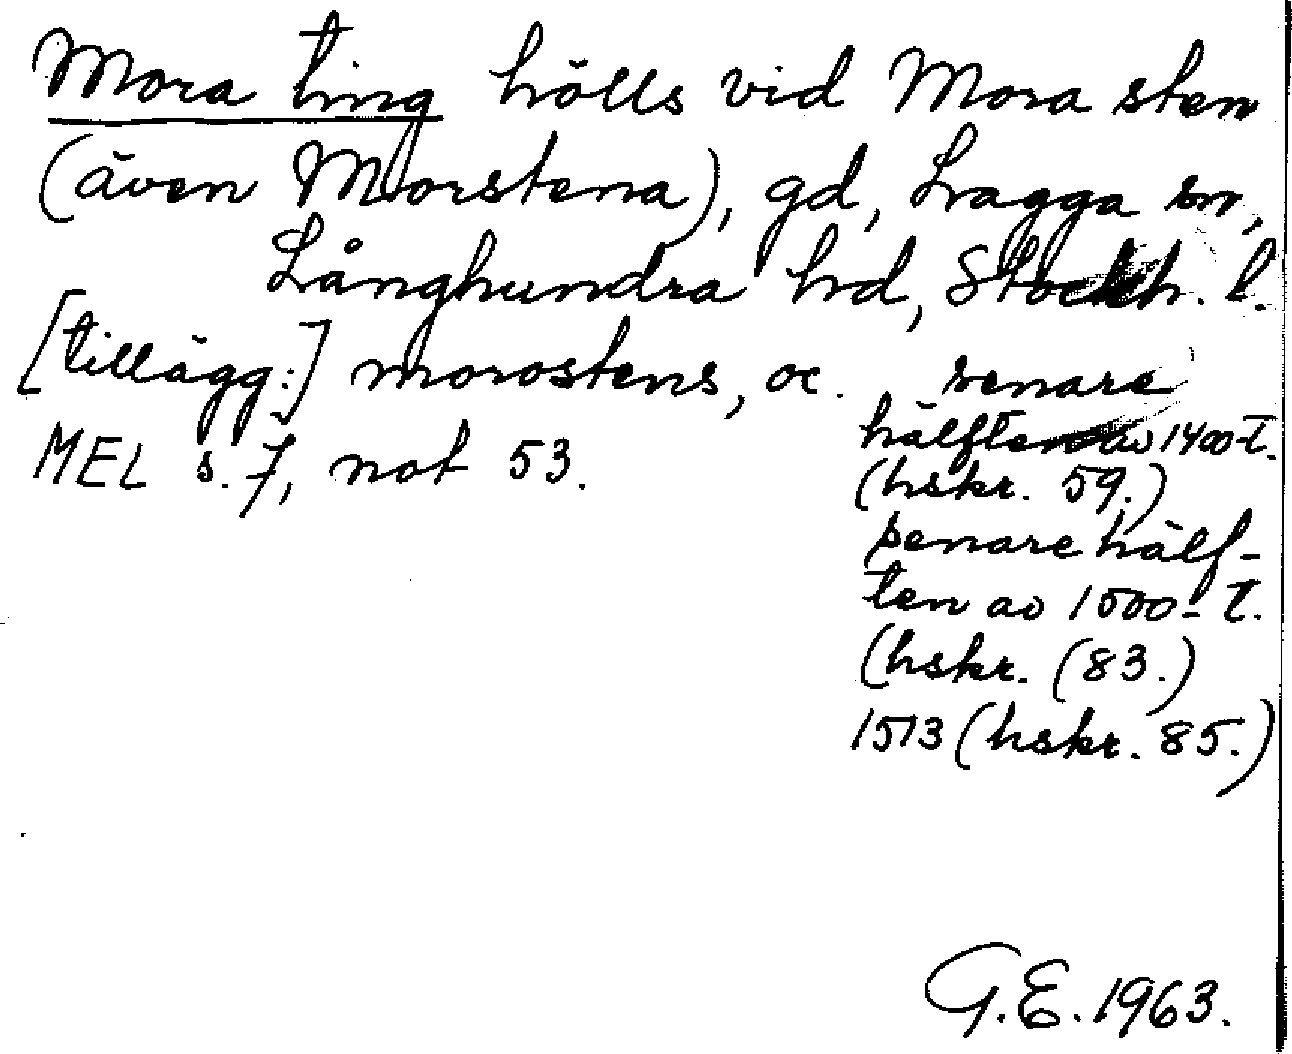 Mora ting hölls vid Mora sten
(även Morstena), gd, Lagga sn,
Långhundra hd, Stockh. l.
[tillägg:] morostens, oc.
MEL s. 7, not 53.
senare
hälften av 1400-t.
(hskr. 59.)
senare hälf-
ten av 1500-t.
(hskr. (83.)
1513 (hskr. 85.)
G.E. 1963.